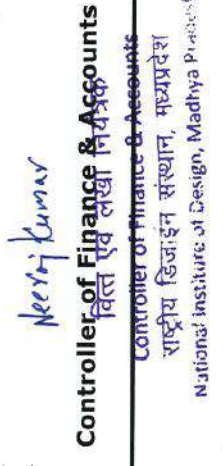 Neeraj Kumar
Controller of Finance & Accounts
वित्त एवं लेखा नियंत्रक
Controller of Finance & Accounts
राष्ट्रीय डिजाईन संस्थान, मध्यप्रदेश
National Institute of Design, Madhya Pradesh